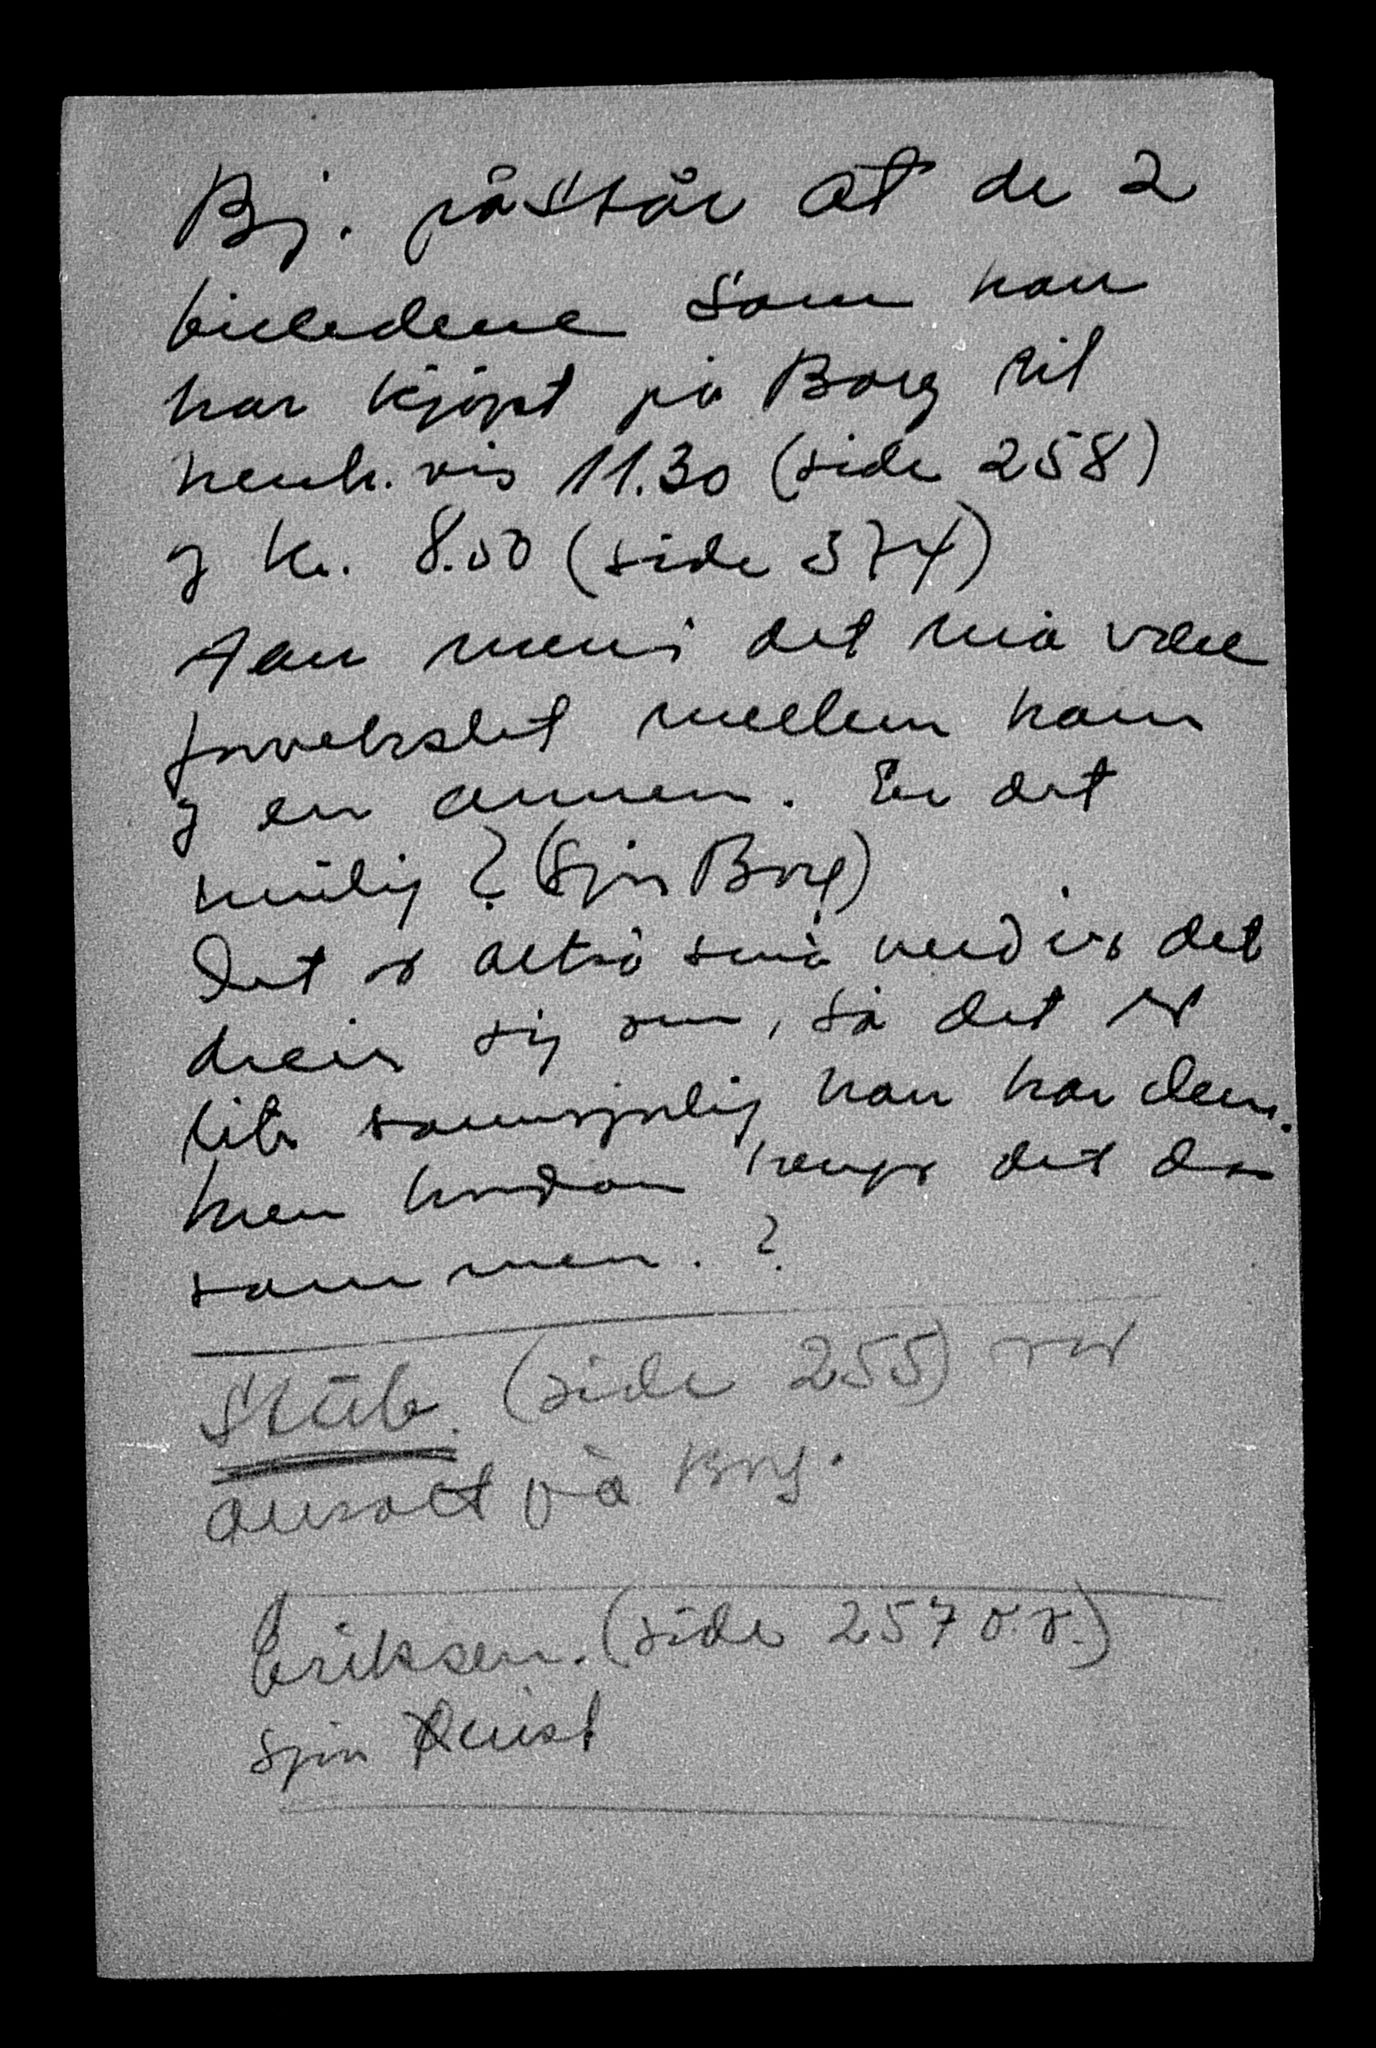 Bj. påstår at de 2
billedene som han
har kjøpt på Borg til
henh.vis 11.30 (side 258)
og kr. 8.00 (side 374)
Han mener det må være
forvekslet mellem ham
og en annen. Er det
mulig? (Spør Borg)
Det er altså små verdier det
dreier sig om, så det er
lite sannsynlig han har dem.
Men hvordan henger det da
sammen.?
Stüb. (side 255) var
ansatt på Borg.
Eriksen. (side 257 o.s.)
spør